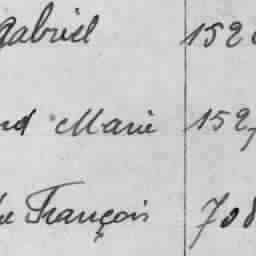 Gabriel 152
Marie 152
François 708